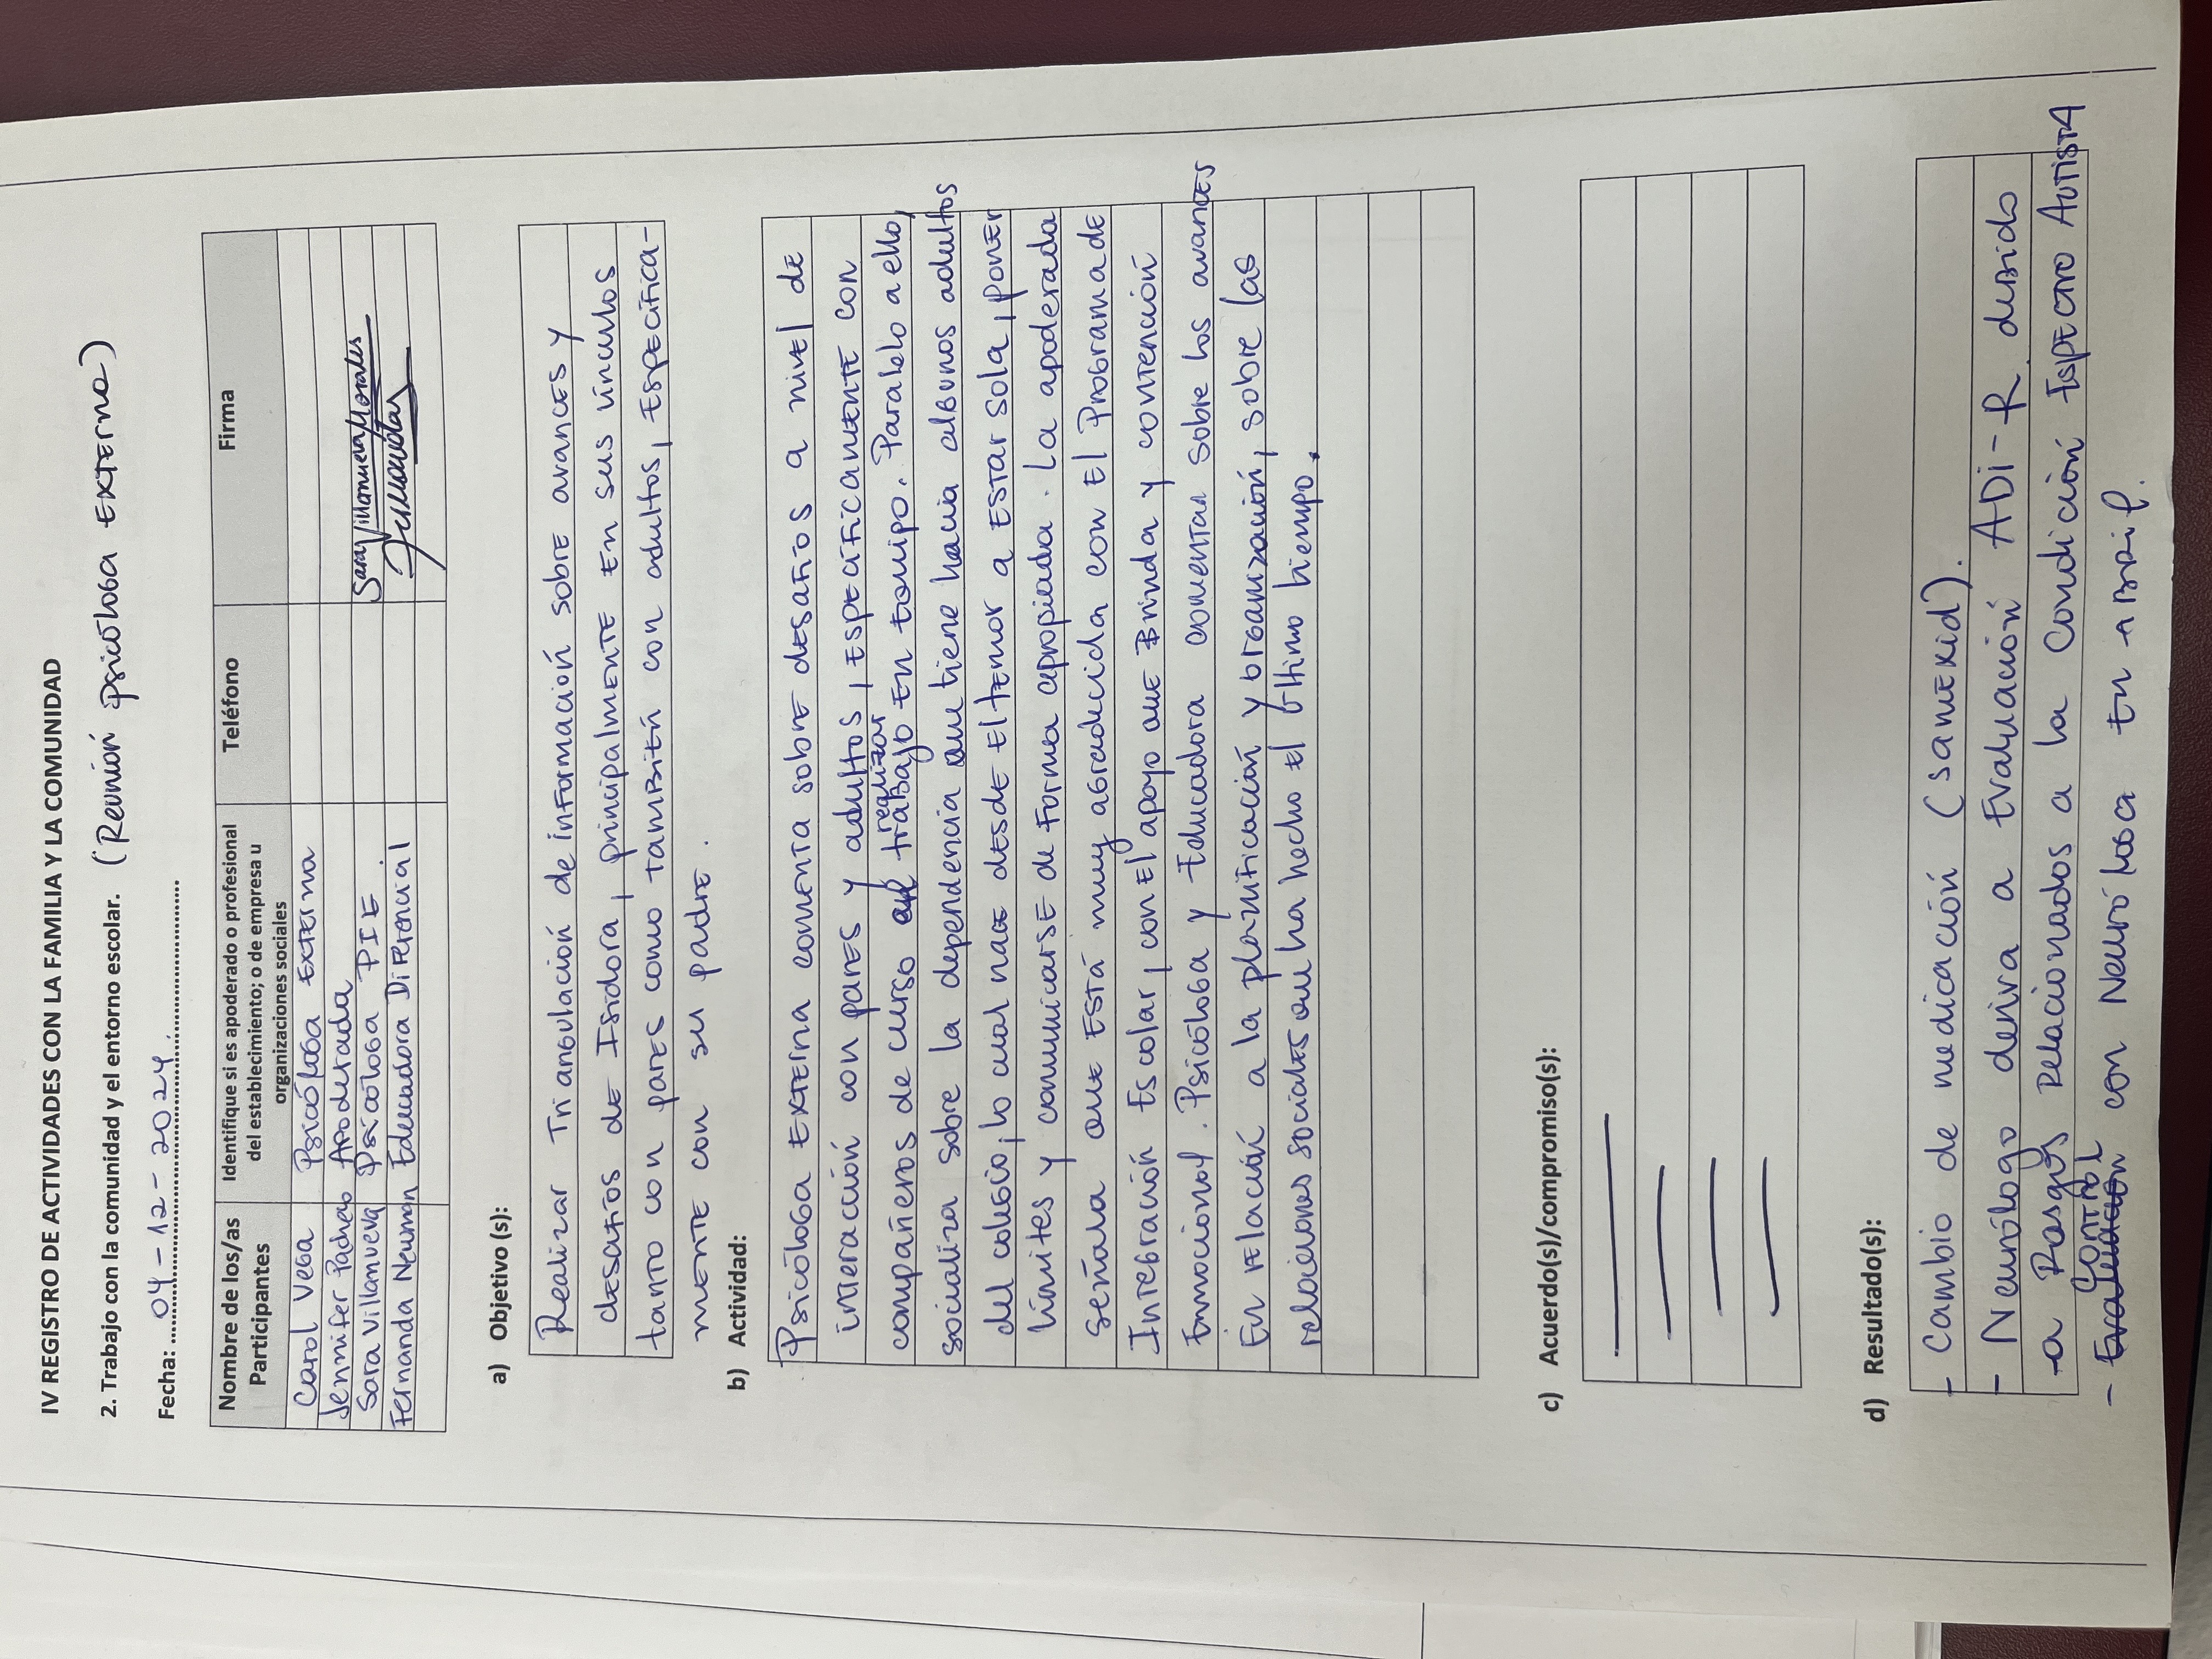 IV REGISTRO DE ACTIVIDADES CON LA FAMILIA Y LA COMUNIDAD
2. Trabajo con la comunidad y el entorno escolar. (Reunión psicóloga externa)
Fecha: 04-12-2024.
Nombre de los/as Participantes
Identifique si es apoderado o profesional del establecimiento; o de empresa u organizaciones sociales
Teléfono
Firma
Carol Vega Psicóloga externa
Jennifer Pacheco Apoderada
Sara Villanueva Psicóloga PIE. Sara Villanueva Morales
Fernanda Neuman Educadora Diferencial
a) Objetivo (s):
Realizar Triangulación de información sobre avances y
desafíos de Isidora, principalmente en sus vínculos
tanto con pares como también con adultos, específica-
mente con su padre.
b) Actividad:
Psicóloga externa comenta sobre desafíos a nivel de
interacción con pares y adultos, específicamente con
compañeros de curso realizar trabajo en equipo. Paralelo a ello,
socializa sobre la dependencia que tiene hacia algunos adultos
del colegio, lo cual nace desde el temor a estar sola, poner
límites y comunicarse de forma apropiada. La apoderada
señala que está muy agradecida con el Programa de
Integración Escolar, con el apoyo que Brinda y contención
Emocional. Psicóloga y Educadora comentan sobre los avances
En relación a la planificación y organización, sobre las
relaciones sociales que ha hecho el último tiempo.
c) Acuerdo(s)/compromiso(s):
d) Resultado(s):
- Cambio de medicación (samexid).
- Neurólogo deriva a Evaluación ADI-R debido
a Rasgos Relacionados a la Condición Espectro Autista
- Control con Neuróloga en abril.